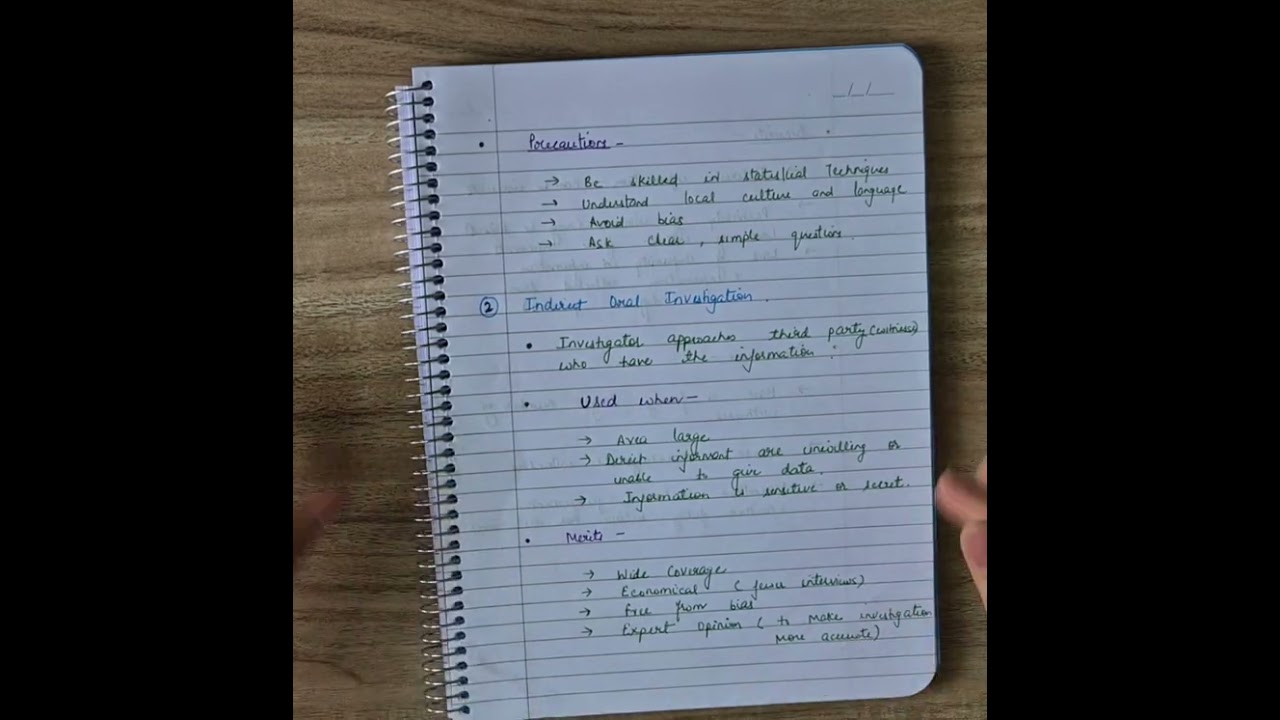 __/__/____
• Precautions –
→ Be skilled in statistical Techniques
→ Understand local culture and language
→ Avoid bias
→ Ask clear, simple questions.
② Indirect Oral Investigation.
• Investigator approaches third party (witness)
who have the information.
• Used when –
→ Area large
→ Direct informant are unwilling or
unable to give data.
→ Information is sensitive or secret.
• Merits –
→ Wide Coverage
→ Economical (fewer interviews)
→ Free from bias
→ Expert Opinion (to make investigation
more accurate)